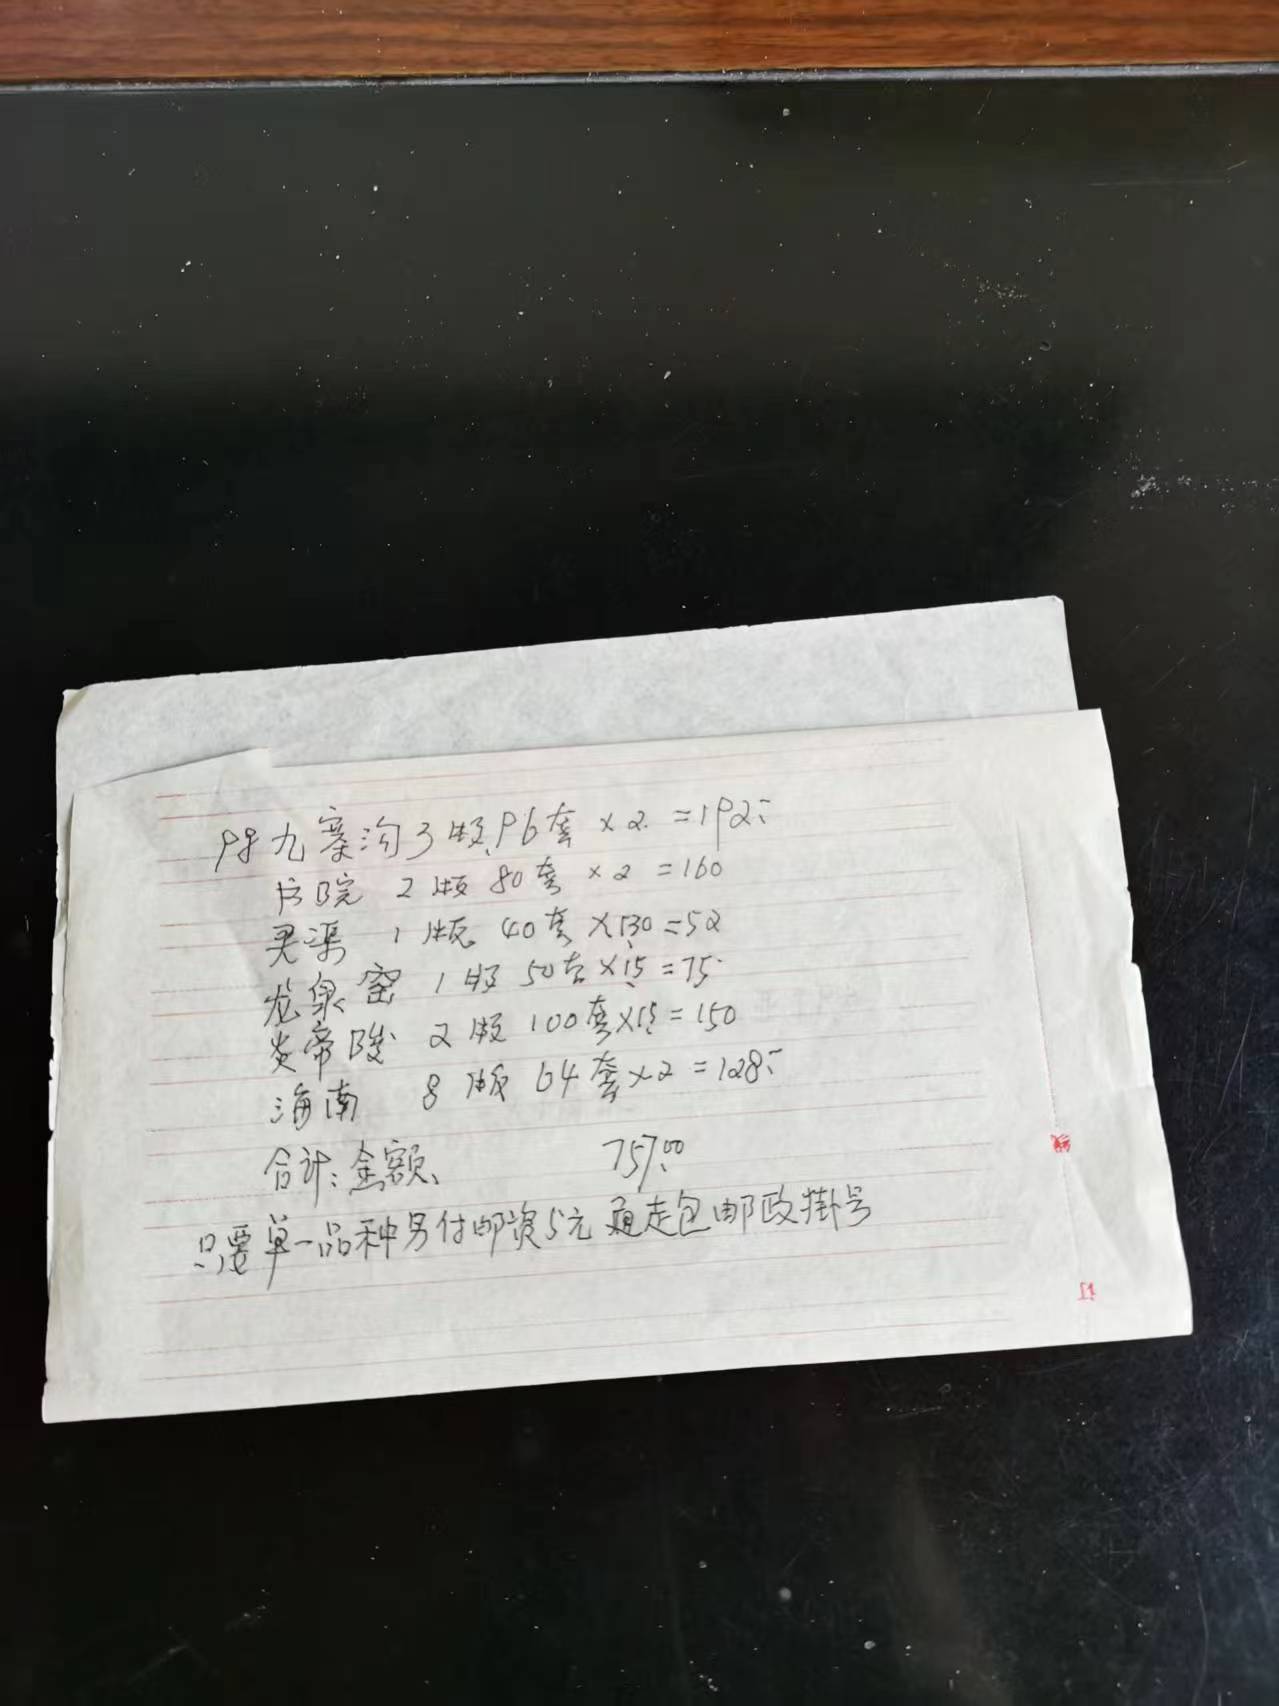 98 九寨沟 3版 96套 × 2 = 192
书院 2版 80套 × 2 = 160
灵渠 1版 40套 × 1.30 = 52
龙泉窑 1版 50套 × 1.5 = 75
炎帝陵 2版 100套 × 1.5 = 150
海南 8版 64套 × 2 = 128
合计:金额 757.00
只要单一品种另付邮资5元 走包邮政掛号
线
订